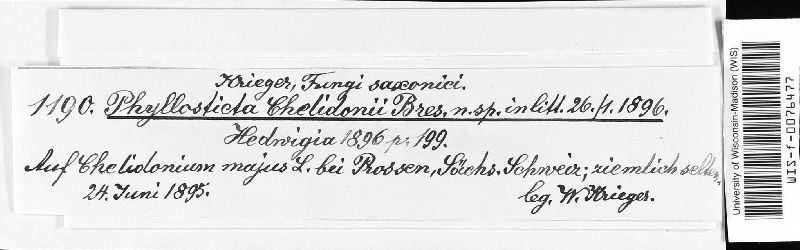 Krieger, Fungi saxonici.
1190. Phyllosticta Chelidonii Bres. n. sp. in litt. 26./1. 1896.
Hedwigia 1896 p. 199.
Auf Chelidonium majus L. bei Prossen, Sächs. Schweiz; ziemlich selten.
24. Juni 1895.
leg. W. Krieger.
University of Wisconsin-Madison (WIS)
WIS-f-0076477